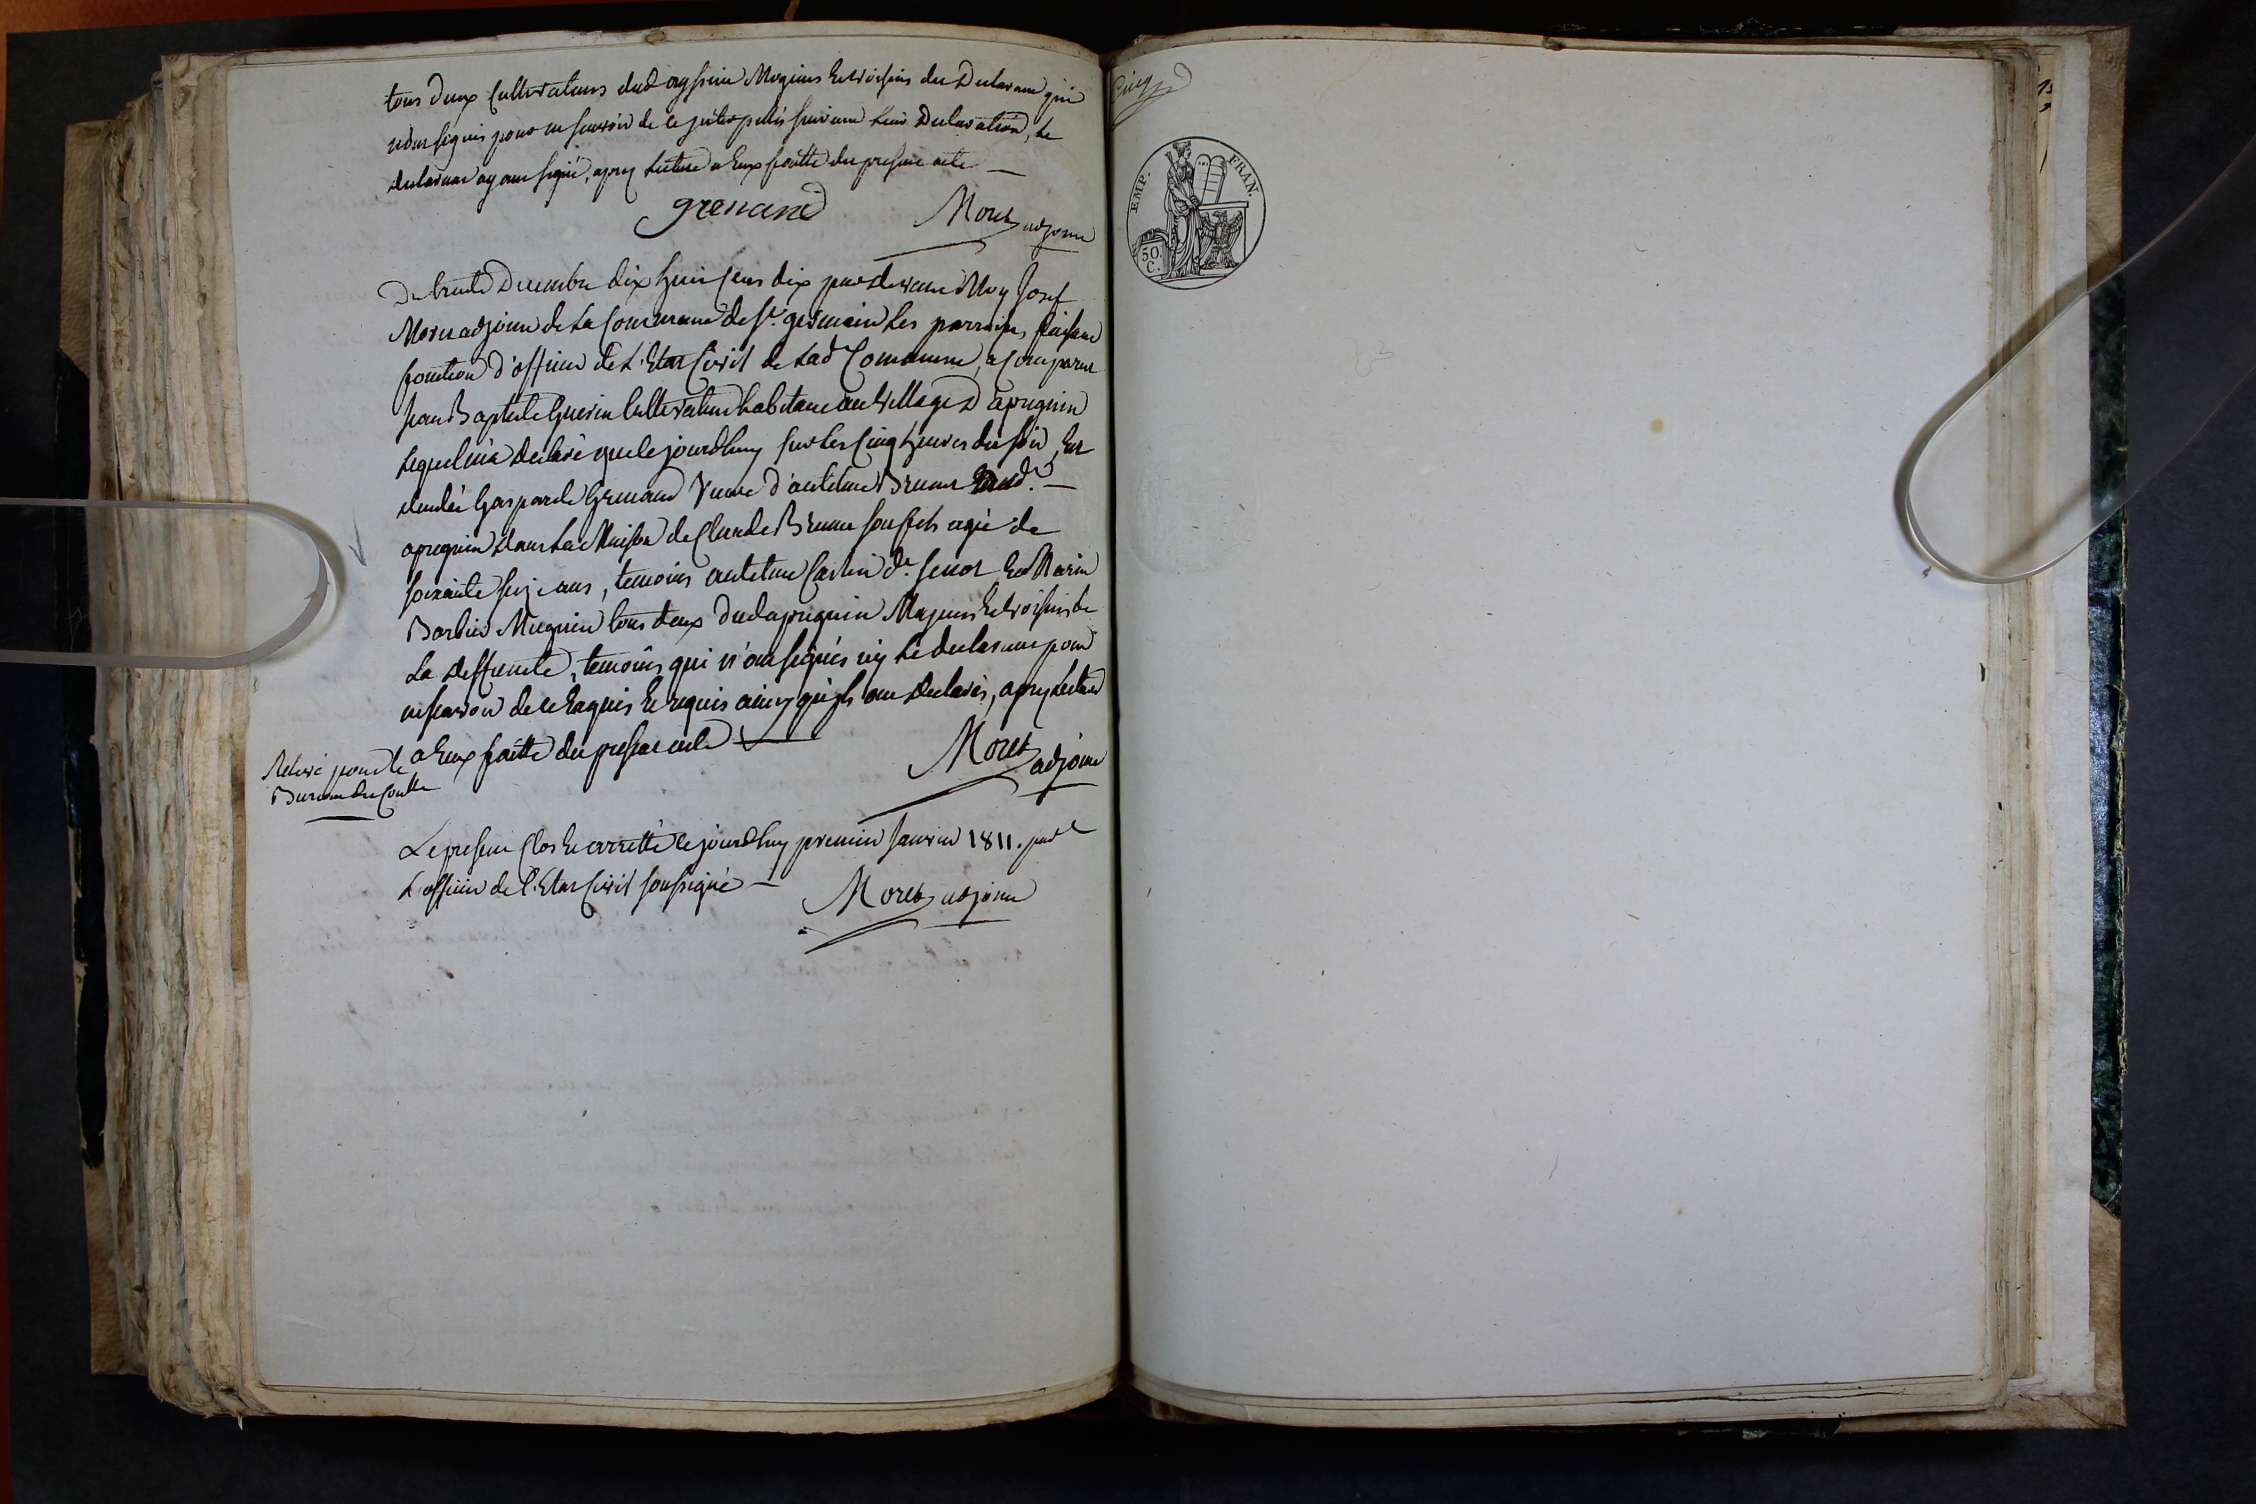 tous deux Cultivateurs dud Mageurs et voisins du Declarant qui
n'ont signés pour ne savoir de ce suivant leur Declaration, le
declarant ayant signé, apres lecture a Eux faitte du present acte —
grenand Moret adjoint
Du trente Decembre dix huit cens dix pardevant Moy Josef
Moret adjoint de La Commune de St. germain Les parroisses, faisant
fonction d'officier de L'Etat Civil de lad Commune, a Comparut
Jean Baptiste Guerin Cultivateur habitant au village D apregnin
lequel m'a declaré que le jourdhuy sur les Cinq heures du soir, Est
decedée Gasparde Grenand veuve d'antelme Brunet dud. —
apregnin dans la Maison de Claude Brunet son fils agée de
soixante seize ans, temoins antelme Carlin dt. Et Marin
Barbier tous deux dudapregnin Mageurs et voisins de
La deffuncte, temoins qui n'ont signés ny le declarant pour
ne savoir de ce Enquis et requis ainsy qu'ils ont declarés, apres lecture
a Eux faitte du present acte — Moret adjoint
Relevé pour le
Bureau du
Le present Clos et arretté le jourdhuy premier Janvier 1811. par
L'officier de l'Etat Civil soussigné — Moret adjoint
Cinq
EMP. FRAN.
50.
C.